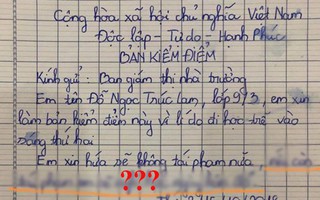 Cộng hòa xã hội chủ nghĩa Việt Nam
Độc lập - Tự do - Hạnh Phúc
BẢN KIỂM ĐIỂM
Kính gửi: Ban giám thị nhà trường
Em tên Đỗ Ngọc Trúc Lam, lớp 9/3, em xin
làm bản kiểm điểm này vì lí do đi học trễ vào
sáng thứ hai
Em xin hứa sẽ không tái phạm nữa,
???